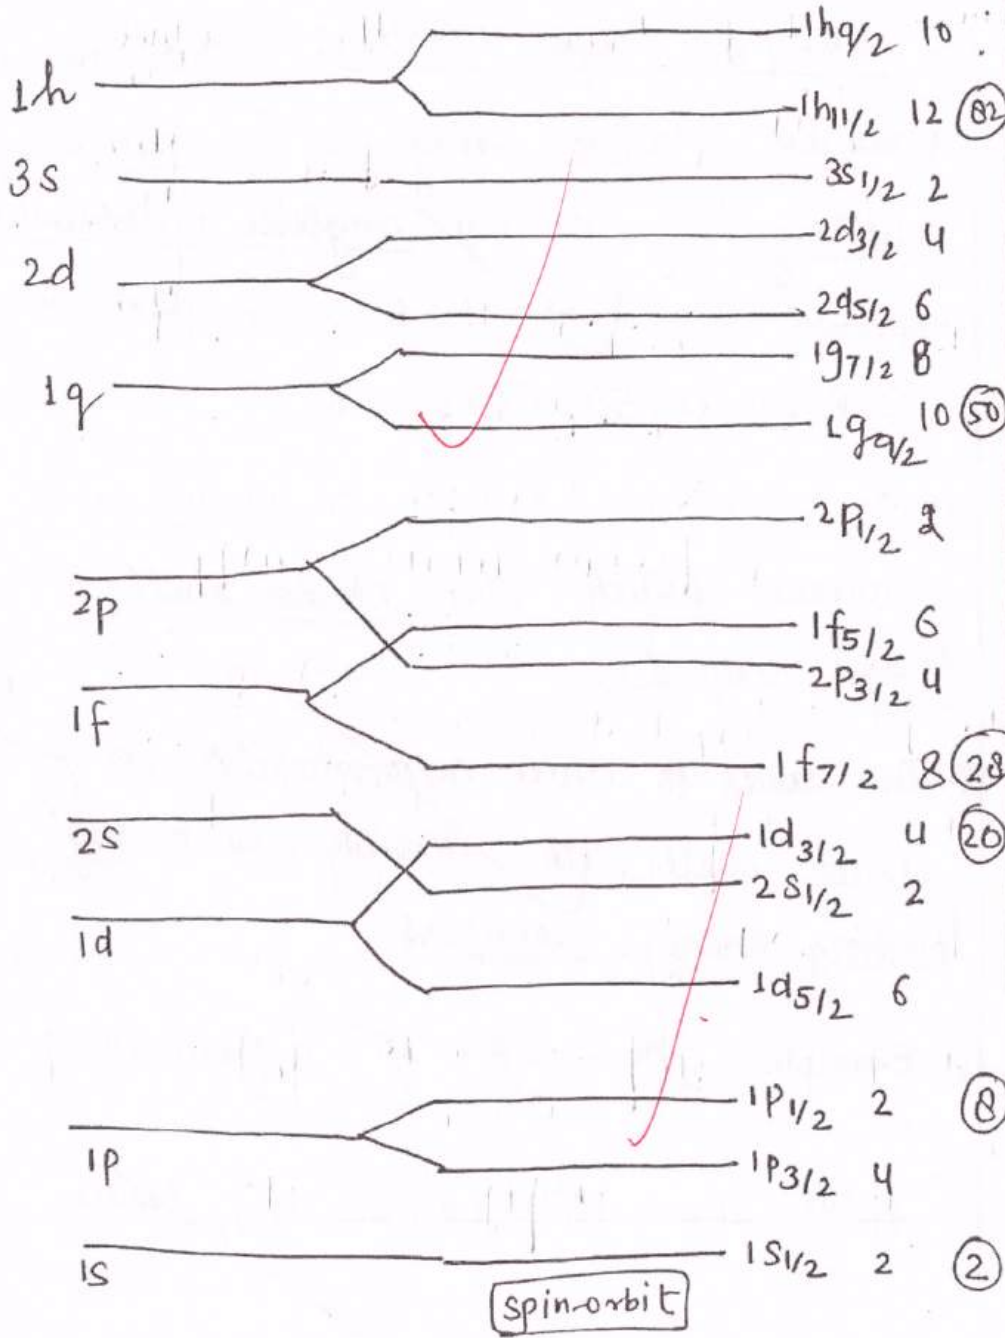 1hq/2 10
1h
1h11/2 12 82
3s
3s1/2 2
2d3/2 4
2d
2ds/2 6
1g7/2 8
1g
1g9/2 10 50
2P1/2 2
2p
1f5/2 6
2P3/2 4
1f
1f7/2 8 28
2s
1d3/2 4 20
2s1/2 2
1d
1d5/2 6
1P1/2 2 8
1p
1P3/2 4
1s
1s1/2 2 2
spin-orbit